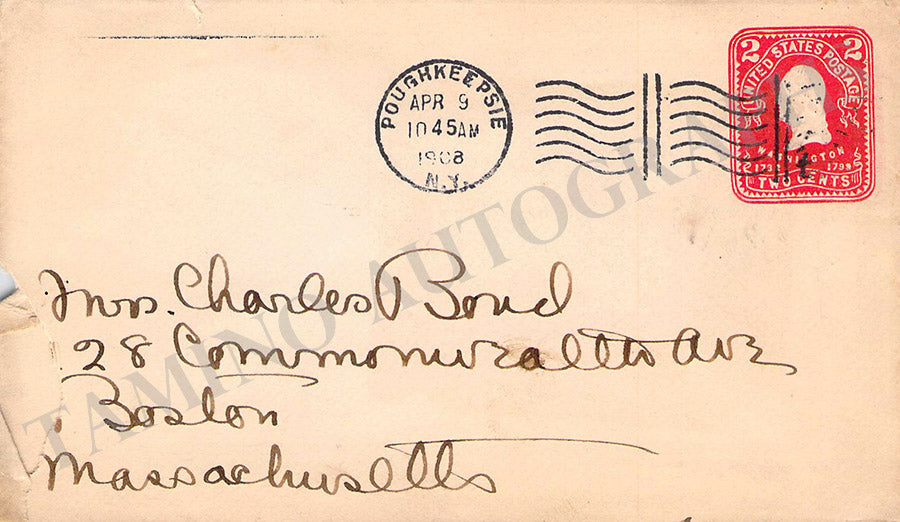 POUGHKEEPSIE
APR 9
10 45 AM
1908
N.Y.
2 UNITED STATES POSTAGE 2
WASHINGTON
1732 1799
TWO CENTS
Mrs. Charles Bond
28 Commonwealth Ave
Boston
Massachusetts
TAMINO AUTOGRAPHS